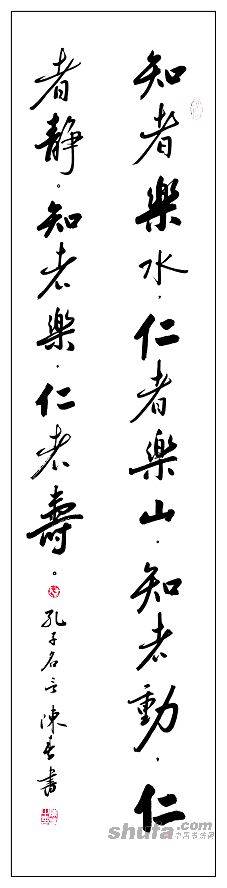 知者樂水，仁者樂山，知者動，仁
者静。知者樂，仁者壽。
孔子名言 陳書
shufa.com